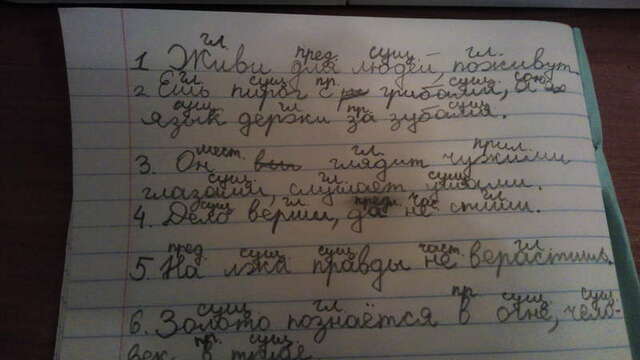 гл. пред. сущ. гл.
1 Живи для людей, поживут
гл. сущ. пр. сущ. союз
2 Ешь пирог с грибами, а
сущ. гл. пр. сущ.
язык держи за зубами.
мест. гл. прил.
3. Он глядит чужими
сущ. гл. сущ.
глазами, слушает ушами.
сущ. гл. част. гл.
4. Дело верши, да не спеши.
пред. сущ. сущ. част. гл.
5. На лжа правды не верастишь.
сущ. гл. пр. сущ. сущ.
6. Золото познаётся в огне, чело-
пр. сущ.
век в труде